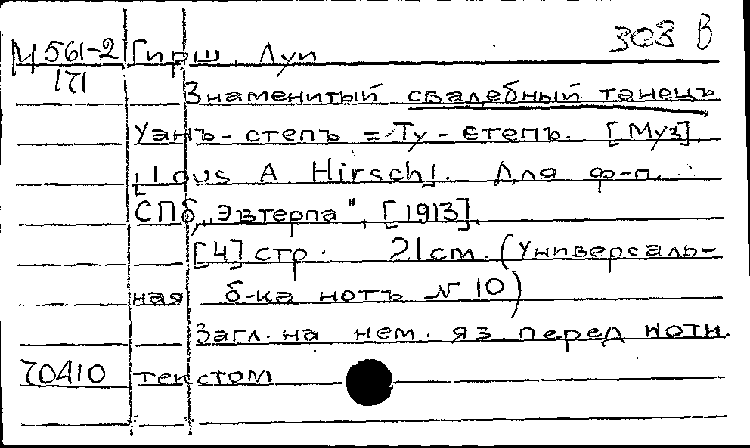 303 В
М 561-2 Гирш, Луи
171
Знаменитый свадебный танецъ
Уанъ-степъ = Ту-степъ. [Муз]
[Lous A. Hirsch]. Для ф-п.
СПб, „Эвтерпа", [1913].
[4] стр. 21 см. (Универсаль-
ная б-ка нотъ № 10)
Загл. на нем. яз перед нотн.
70410 текстом